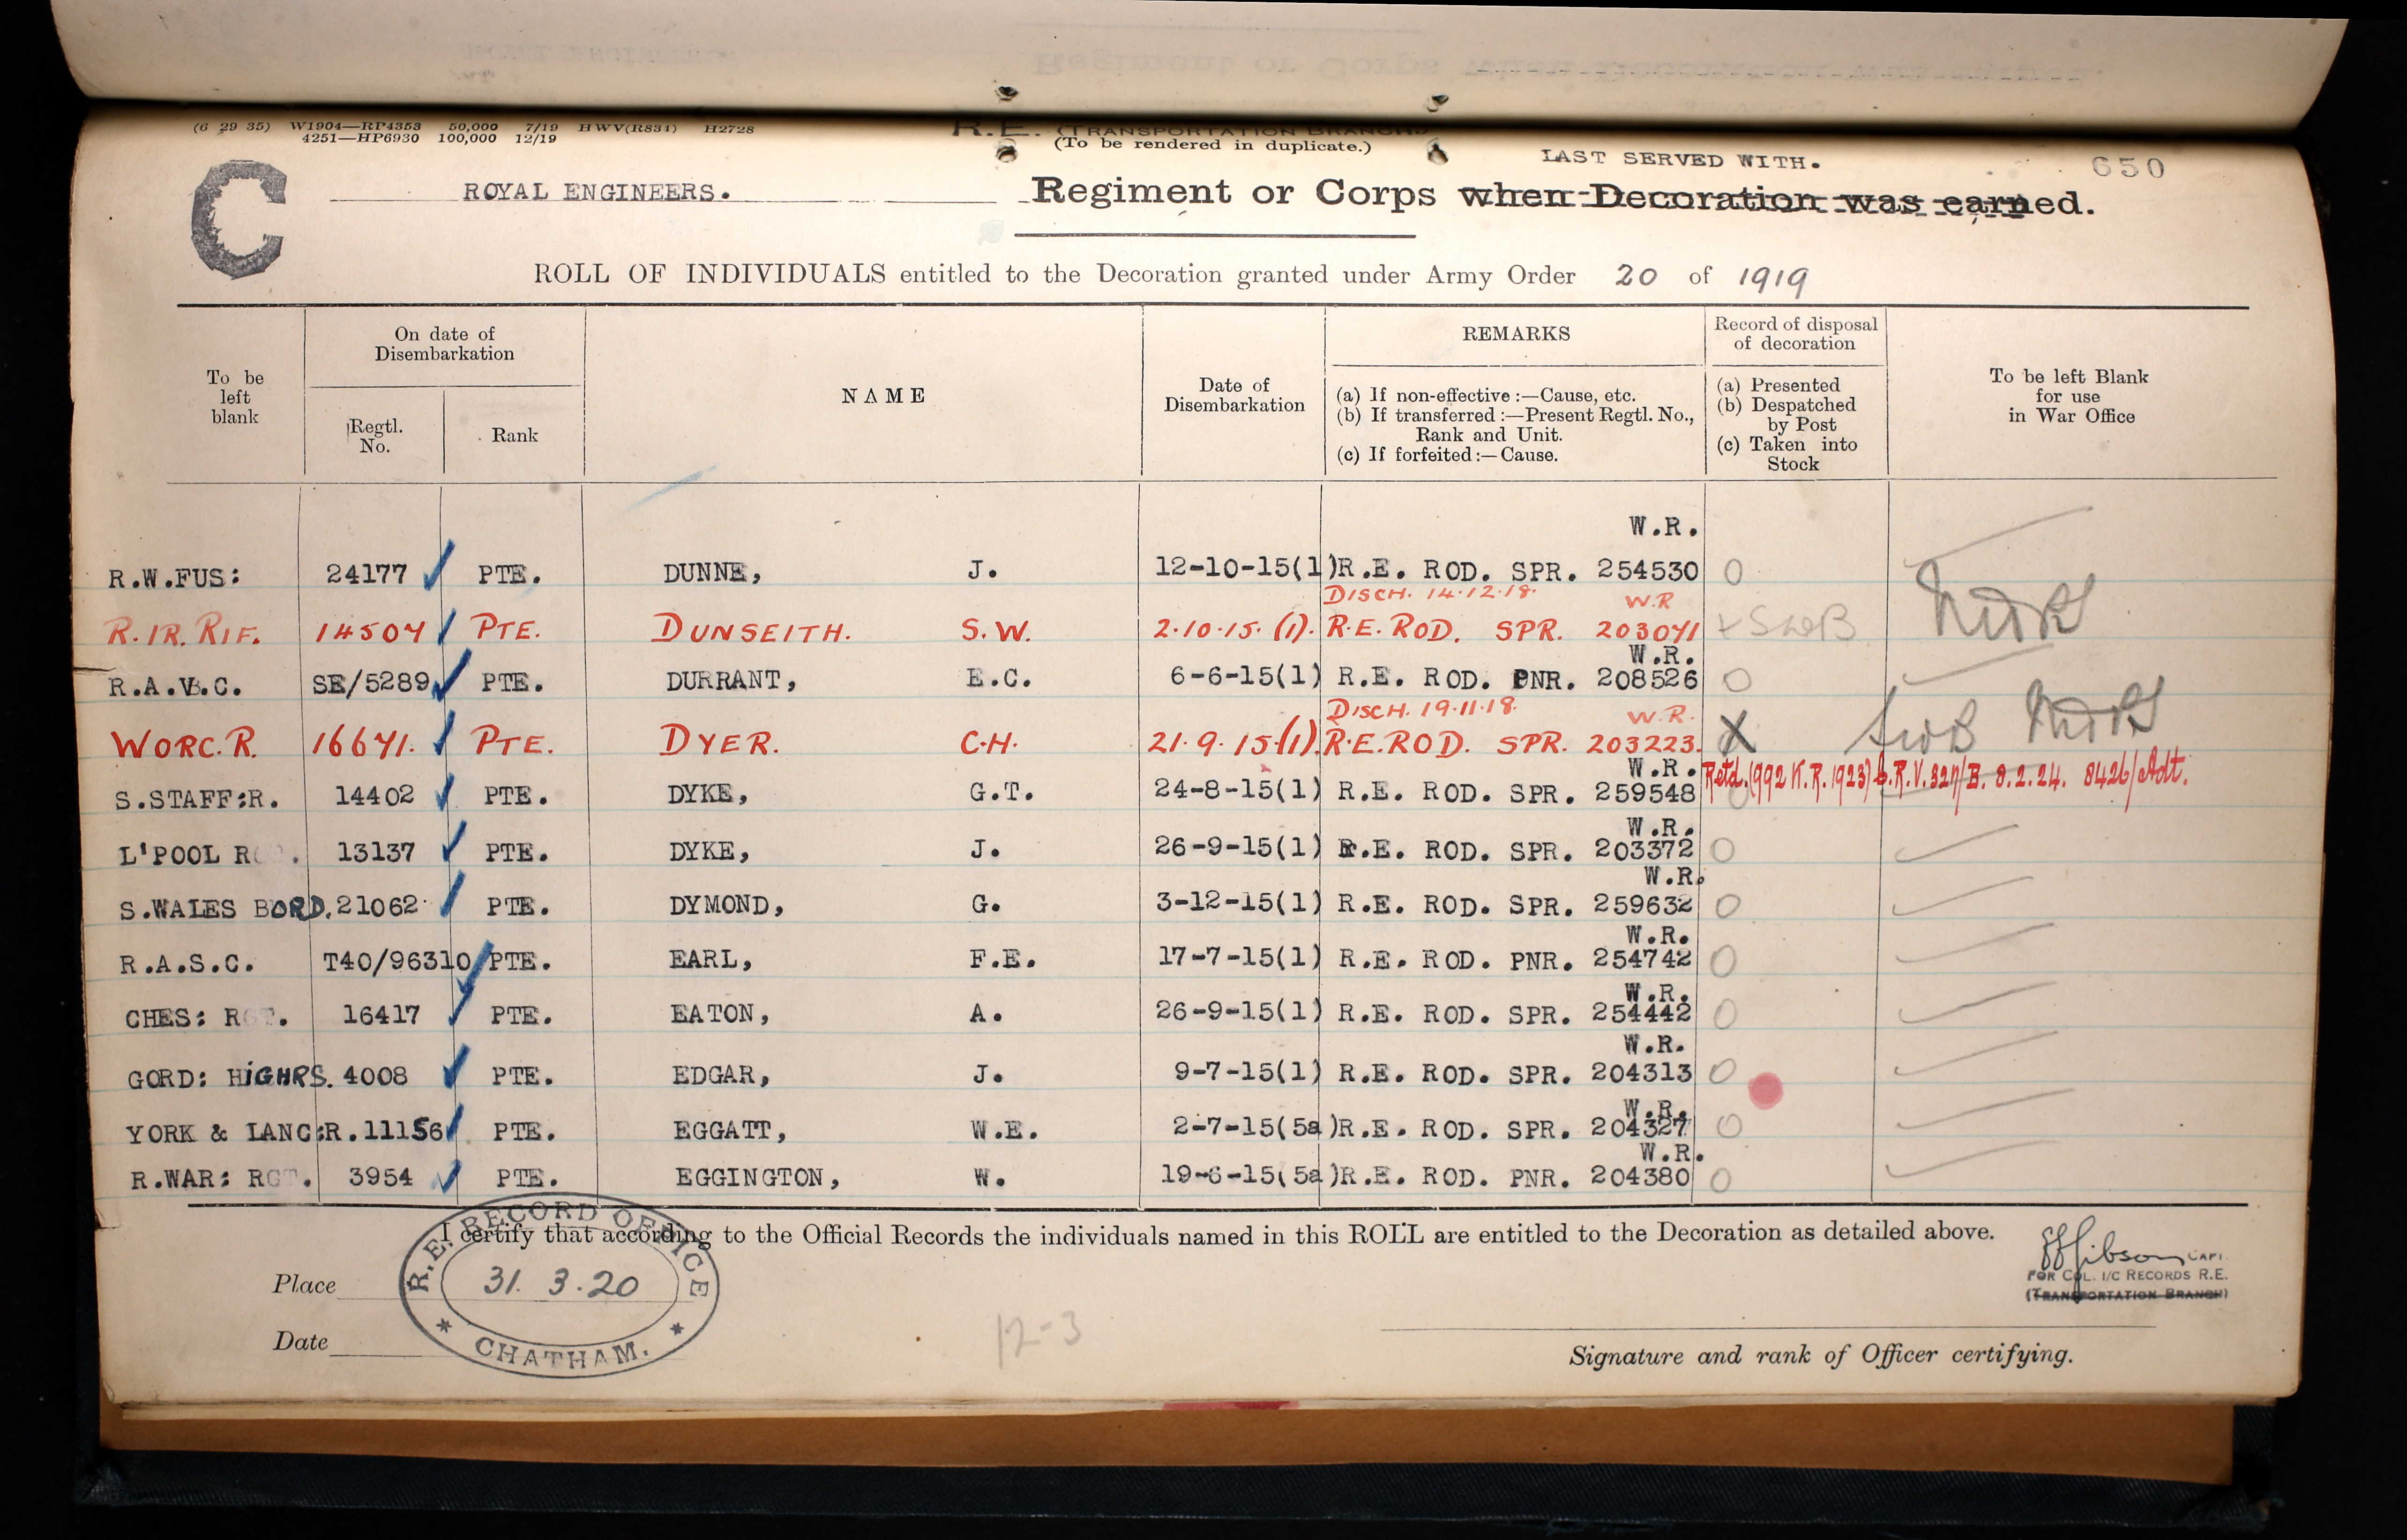 (6 29 35) W1904—RP4353 50,000 7/19 HWV(R834) H2728
4251—HP6930 100,000 12/19
R.E. (TRANSPORTATION BRANCH)
(To be rendered in duplicate.)
LAST SERVED WITH.
650
C
ROYAL ENGINEERS. Regiment or Corps when Decoration was earned.
ROLL OF INDIVIDUALS entitled to the Decoration granted under Army Order 20 of 1919
To be left blank
On date of Disembarkation
Regtl. No.
Rank
NAME
Date of Disembarkation
REMARKS
(a) If non-effective :—Cause, etc.
(b) If transferred :—Present Regtl. No., Rank and Unit.
(c) If forfeited :—Cause.
Record of disposal of decoration
(a) Presented
(b) Despatched by Post
(c) Taken into Stock
To be left Blank for use in War Office
W.R.
R.W.FUS: 24177 PTE. DUNNE, J. 12-10-15(1) R.E. ROD. SPR. 254530 O
DISCH. 14.12.18. W.R
R. IR. RIF. 14504 PTE. DUNSEITH. S.W. 2.10.15.(1). R.E. ROD. SPR. 203041 + SWB
W.R.
R.A.V.C. SE/5289 PTE. DURRANT, E.C. 6-6-15(1) R.E. ROD. PNR. 208526 O
DISCH. 19.11.18. W.R.
WORC. R. 16641. PTE. DYER. C.H. 21.9.15.(1). R.E. ROD. SPR. 203223. X SWB
W.R. Retd. (992 K.R. 1923) 6.R.V. 327/B. 8.2.24. 8426/Adt.
S.STAFF:R. 14402 PTE. DYKE, G.T. 24-8-15(1) R.E. ROD. SPR. 259548
W.R.
L'POOL R . 13137 PTE. DYKE, J. 26-9-15(1) R.E. ROD. SPR. 203372 O
W.R.
S.WALES BORD. 21062 PTE. DYMOND, G. 3-12-15(1) R.E. ROD. SPR. 259632 O
W.R.
R.A.S.C. T40/96310 PTE. EARL, F.E. 17-7-15(1) R.E. ROD. PNR. 254742 O
W.R.
CHES: RGT. 16417 PTE. EATON, A. 26-9-15(1) R.E. ROD. SPR. 254442 O
W.R.
GORD: HIGHRS. 4008 PTE. EDGAR, J. 9-7-15(1) R.E. ROD. SPR. 204313 O
W.R.
YORK & LANC:R. 11156 PTE. EGGATT, W.E. 2-7-15(5a) R.E. ROD. SPR. 204327 O
W.R.
R.WAR: RGT. 3954 PTE. EGGINGTON, W. 19-6-15(5a) R.E. ROD. PNR. 204380 O
I certify that according to the Official Records the individuals named in this ROLL are entitled to the Decoration as detailed above.
Gibson CAPT.
FOR COL. I/C RECORDS R.E.
(TRANSPORTATION BRANCH)
Place
Date
R.E. RECORD OFFICE
31. 3.20
* CHATHAM. *
12-3
Signature and rank of Officer certifying.